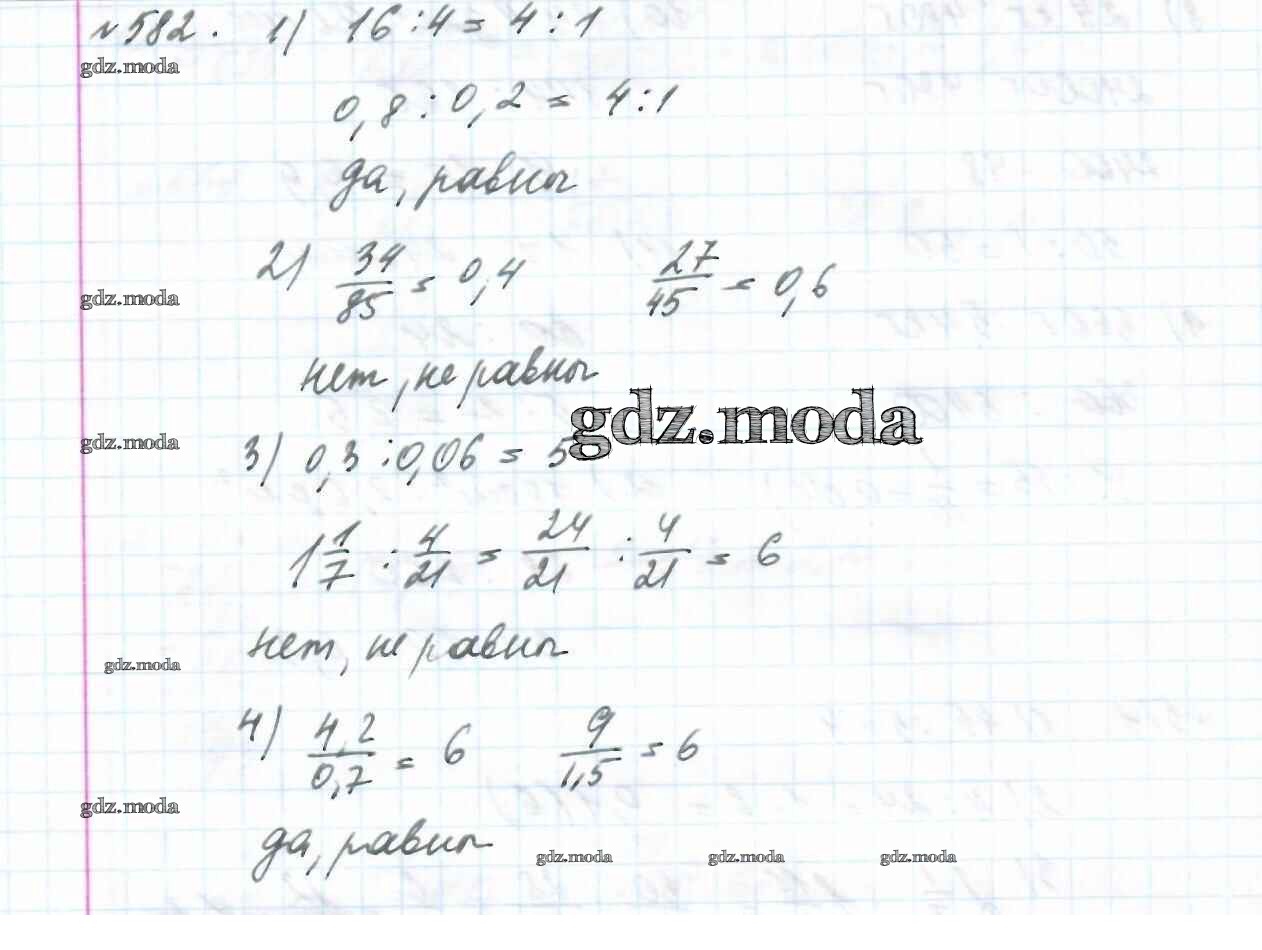 №582. 1) 16 : 4 = 4 : 1
gdz.moda
0,8 : 0,2 = 4 : 1
да, равны
2) 34/85 = 0,4 27/45 = 0,6
gdz.moda
нет, не равны
gdz.moda
gdz.moda
3) 0,3 : 0,06 = 5
1 1/7 : 4/21 = 24/21 : 4/21 = 6
нет, не равны
gdz.moda
4) 4,2/0,7 = 6 9/1,5 = 6
gdz.moda
да, равны
gdz.moda gdz.moda gdz.moda